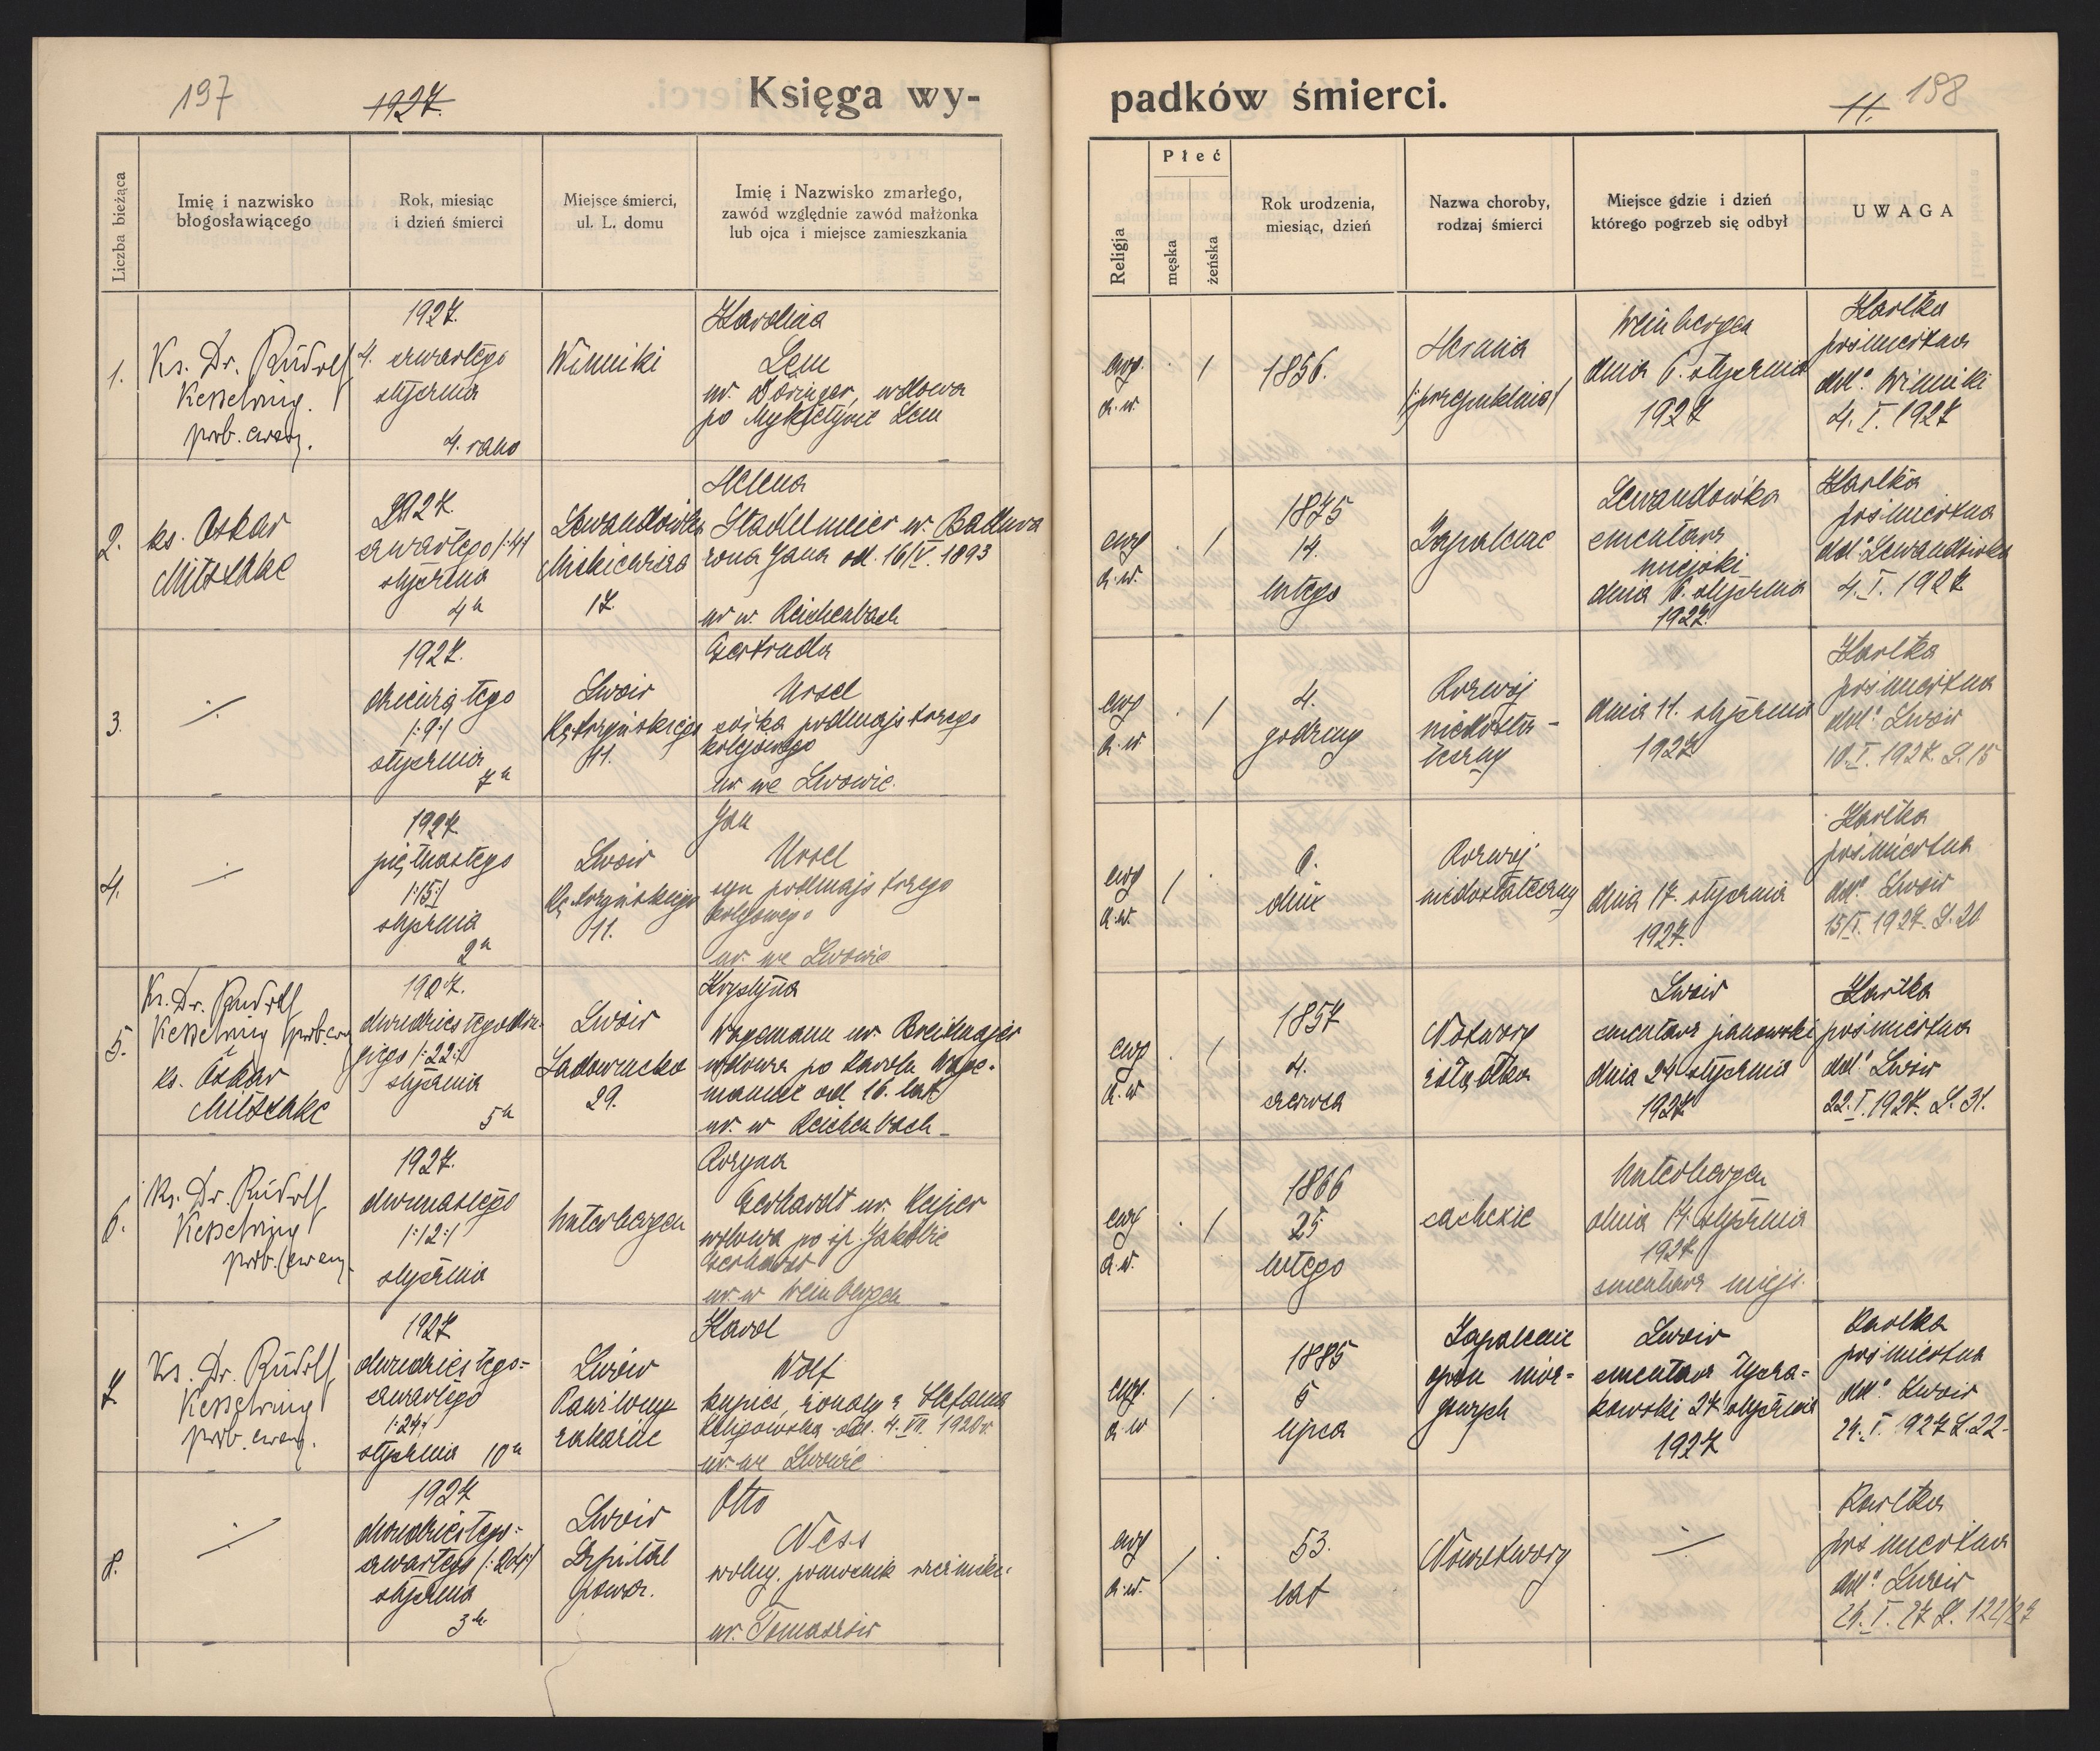 197
1927.
Księga wy-
padków śmierci.
11.
198
Liczba bieżąca
Imię i nazwisko
błogosławiącego
Rok, miesiąc
i dzień śmierci
Miejsce śmierci,
ul. L. domu
Imię i Nazwisko zmarłego,
zawód względnie zawód małżonka
lub ojca i miejsce zamieszkania
Religja
Płeć
męska
żeńska
Rok urodzenia,
miesiąc, dzień
Nazwa choroby,
rodzaj śmierci
Miejsce gdzie i dzień
którego pogrzeb się odbył
UWAGA
1.
Ks. Dr. Rudolf
Kesselring
prob. ewang.
1927.
4. czwartego
stycznia
4. rano
Winniki
Karolina
Lem
ur. Döringer, wdowa
po Lem
ewg.
a. w.
/
1856.
Hernia
/:przepuklina/
Weinbergen
dnia 6. stycznia
1927
Kartka
pośmiertna
dd: Winniki
4. I. 1927
2.
ks. Oskar
Mitschke
1927.
czwartego /:4/
stycznia
4h
Lewandówka
Mickiewicza
17.
Helena
Stadelmeier ur. Badura
żona Jana od. 16/V. 1893
ur w. Reichenbach
ewg
a. w.
/
1875
14.
lutego
Zapalenie
Lewandówka
cmentarz
miejski
dnia 6. stycznia
1927.
Kartka
pośmiertna
dd: Lewandówka
4. I. 1927.
3.
÷
1927.
dziewiątego
/:9:/
stycznia
7h
Lwów
Kętrzyńskiego
11.
Gertruda
Ursel
córka podmajstrzego
kolejowego
ur. we Lwowie.
ewg
a. w
/
4.
godziny
Rozwój
niedosta-
teczny
dnia 11. stycznia
1927
Kartka
pośmiertna
dd: Lwów
10. I. 1927. L. 15
4.
÷
1927
piętnastego
/:15:/
stycznia
2h
Lwów
Kętrzyńskiego
11.
Jan
Ursel
syn podmajstrzego
kolejowego
ur. we Lwowie
ewg
a. w.
/
6.
dni
Rozwój
niedostateczny
dnia 17. stycznia
1927.
Kartka
pośmiertna
dd: Lwów
15/I. 1927. L. 20
5.
Ks. Dr. Rudolf
Kesselring prob. ew
ks. Oskar
Mitschke
1927.
dwudziestegodru-
giego /:22:/
stycznia
5h
Lwów
Sadownicka
29.
Krystyna
Wagemann ur. Breitmajer
wdowa po Karolu Wage-
mannie od 16. lat
ur. w Reichenbach
ewg
a. w
/
1857
4.
czerwca
Nowotwory
żołądka
Lwów
cmentarz janowski
dnia 24 stycznia
1927
Kartka
pośmiertna
dd: Lwów
22. I. 1927. L. 31.
6.
Ks. Dr. Rudolf
Kesselring
prob. ewang.
1927.
dwunastego
/:12:/
stycznia
Unterbergen
Rozyna
Gerhardt ur. Kujer
wdowa po śp. Jakobie
Gerhardt
ur. w Weinbergen
ewg
a. w.
/
1866
25
lutego
cachexie
Unterbergen
dnia 14. stycznia
1927
cmentarz miejs.
7.
Ks. Dr. Rudolf
Kesselring
prob. ewang.
1927
dwudziestego-
czwartego
/:24:/
stycznia 10h
Lwów
Pawilony
zakaźne
Karol
Wolf
kupiec, żonaty z Stefania
od. 4. VII. 1920 r.
ur. we Lwowie
ewg.
a. w
/
1885
5
lipca
Zapalenie
opon móz-
gowych
Lwów
cmentarz łycza-
kowski 27 stycznia
1927
Kartka
pośmiertna
dd: Lwów
24. I. 1927 L. 22-
8.
÷
1927
dwudziestego-
czwartego /:24:/
stycznia
3h.
Lwów
Szpital
powsz.
Otto
Ness
wolny. pomocnik
ur. Tomaszów
ewg
a. w.
/
53.
lat
Nowotwory
÷
Kartka
pośmiertna
dd: Lwów
24. I. 27 L. 122/27